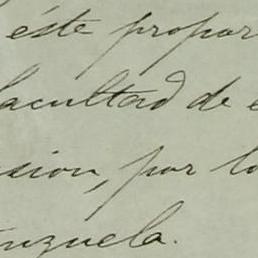 éste propor
facultad de e
sion, por lo
nzuela.